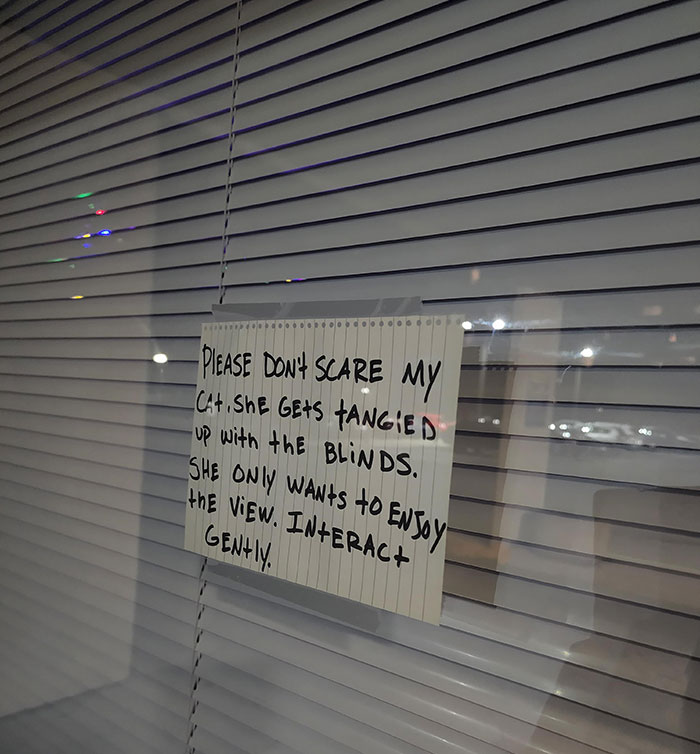 PLEASE DON't SCARE MY
CAt. ShE GEtS tANGlED
UP with thE BLiNDS.
SHE ONLY WANtS tO ENJOY
thE VIEW. INtERACt
GENtlY.